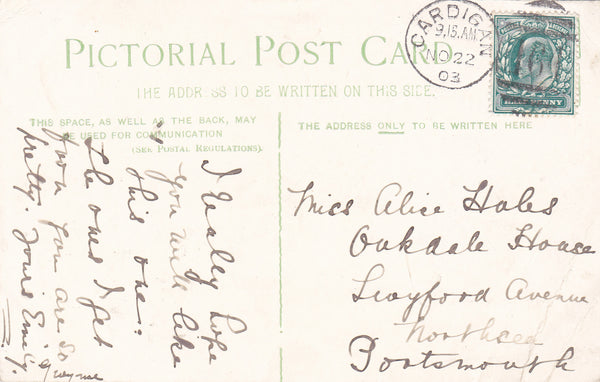 PICTORIAL POST CARD
THE ADDRESS TO BE WRITTEN ON THIS SIDE.
THIS SPACE, AS WELL AS THE BACK, MAY
BE USED FOR COMMUNICATION
(SEE POSTAL REGULATIONS).
THE ADDRESS ONLY TO BE WRITTEN HERE
CARDIGAN
9.15.AM
NO 22
03
HALFPENNY
I Realey hope
you will like
this one.
The ones I get
from you are so
pretty. Yours Emily
Miss Alice Holes
Oakdale House
Avenue
Northsea
Portsmouth